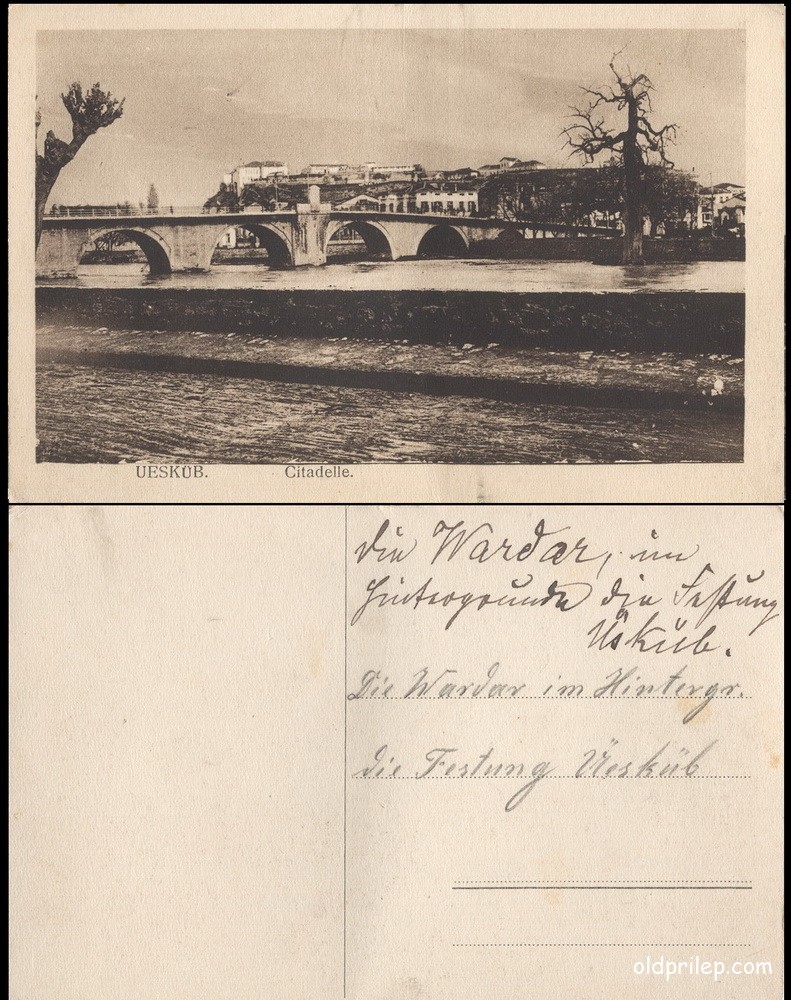 UESKÜB. Citadelle.
die Wardar, im
Hintergrunde die Festung
Üsküb.
Die Wardar im Hintergr.
die Festung Üesküb
oldprilep.com